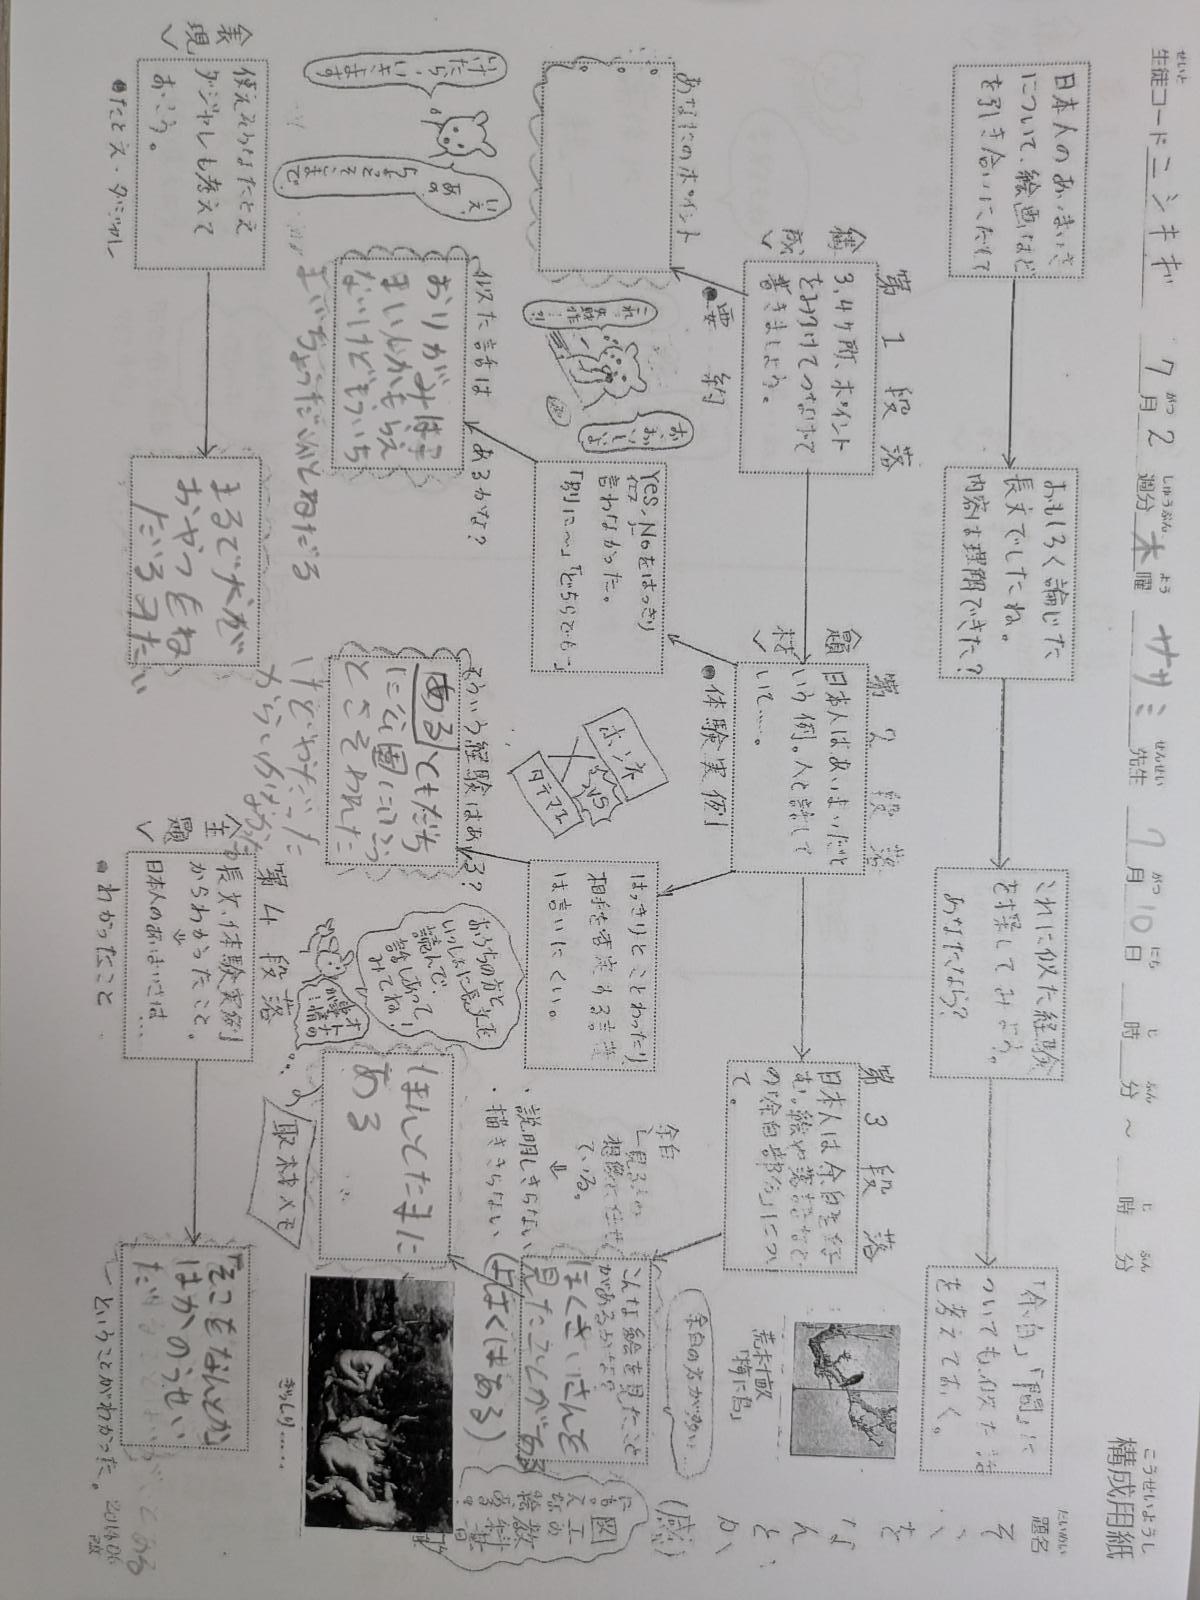 構成用紙
こうせいようし
題名
だいめい
そこを、なんとか
(感)
せいと
生徒コード ニシキギ 7月2週分 木曜 ササミ 先生 7月10日 時 分 ～ 時 分
がつ しゅうぶん よう せんせい がつ にち じ ふん じ ふん
日本人のあいまいさ
について、絵画など
を引き合いにだして
おもしろく論じた
長文でしたね。
内容は理解できた?
これに似た経験
を探してみよう。
あなたなら?
「余白」「間」に
ついても似た話
を考えておく。
第1段落
構成
3,4ヶ所、ポイント
をみつけてつなげて
書きましょう。
●要約
あなたのポイント
第2段落
題材
日本人はあいまいだと
いう例。人と話して
いて……。
●体験実例
Yes、Noをはっきり
言わなかった。
「別に〜」「どちらでも」
似た話は あるかな?
おりがみは1
まいしかもらえ
ないけどもういち
まいちょうだいとねだる
はっきりとことわったり
相手を否定する言葉
は言いにくい。
そういう経験はある?
ある ともだち
に公園にいこう
とさそわれた
けどやだった
からいいわけした
第3段落
日本人は余白を好
む。絵や落語など
の「余白部分」につい
て。
荒木十畝
「梅に鳥」
余白の方が多い…
余白
見る人の
想像に任せ
ている。
↓
・説明しきらない
・描ききらない
こんな絵を見たこと
があるかな?
ほくさいさんを
見たことがある
(ぼくはある)
図工の教科書
にも
絵がある!
ほんとたまに
ある
ぎっしり……
取材メモ
おうちの方と
いっしょに長文を
読んで、
話しあって
みてね!
ホンネ
VS
タテマエ
いけたら、いきます
いえ、
あの、
ちょとそこまで。
表現
使えそうなたとえ
ダジャレも考えて
おこう。
●たとえ・ダジャレ
まるで犬が
おやつをね
だるみたい
第4段落
主題
長文、体験実例
からわかったこと。
↓
日本人のあいまいさは…
●わかったこと
『そこをなんとか』
はかのうせい
だ
ということがわかった。